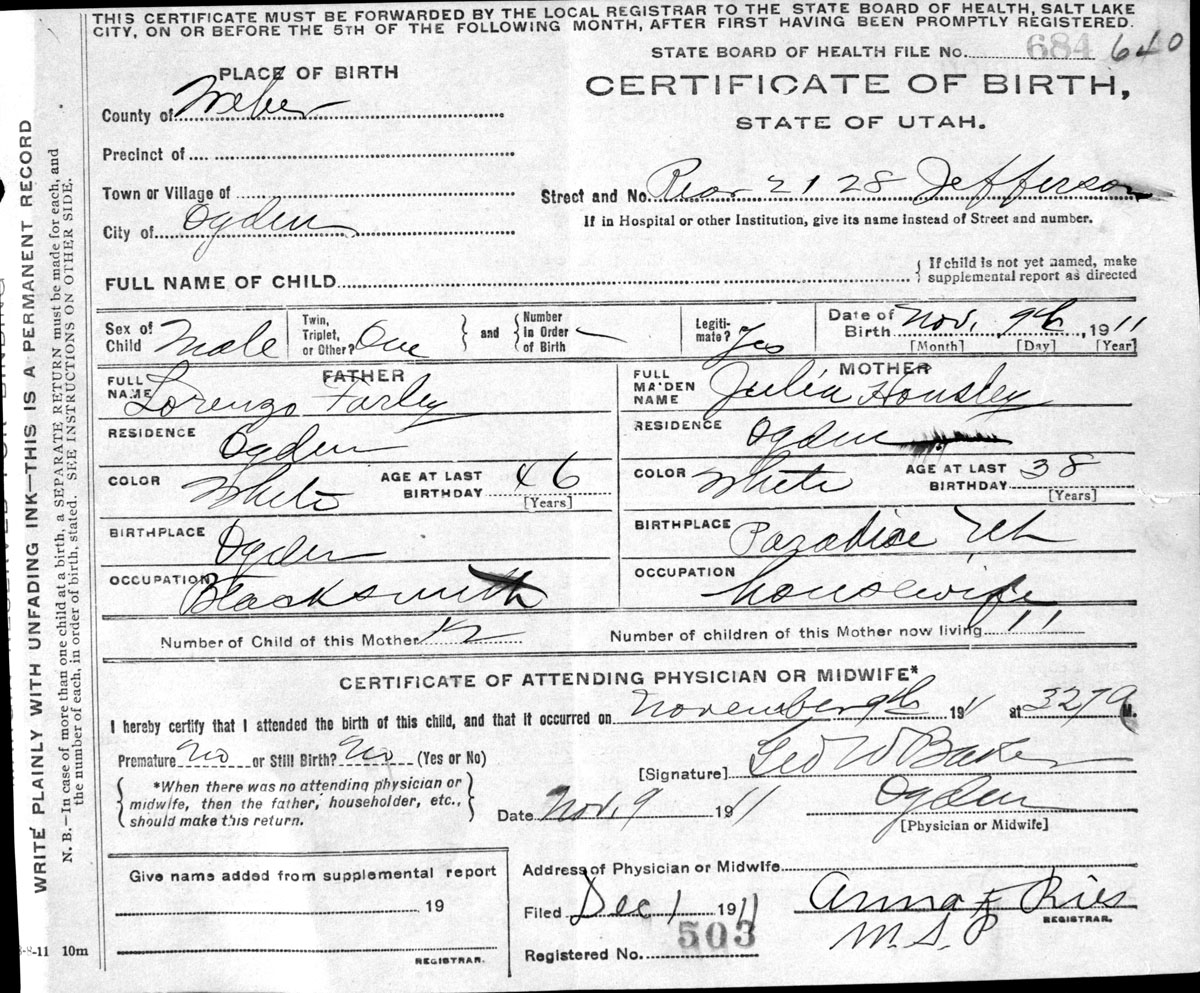 THIS CERTIFICATE MUST BE FORWARDED BY THE LOCAL REGISTRAR TO THE STATE BOARD OF HEALTH, SALT LAKE
CITY, ON OR BEFORE THE 5TH OF THE FOLLOWING MONTH, AFTER FIRST HAVING BEEN PROMPTLY REGISTERED.
STATE BOARD OF HEALTH FILE No. 684 640
PLACE OF BIRTH
CERTIFICATE OF BIRTH,
STATE OF UTAH.
County of Weber
Precinct of
Town or Village of
Street and No. Rear 2128 Jefferson
City of Ogden
If in Hospital or other Institution, give its name instead of Street and number.
FULL NAME OF CHILD
{ If child is not yet named, make
supplemental report as directed
Sex of Child Male
Twin, Triplet, or Other? One
and
Number in Order of Birth —
Legiti-mate? Yes
Date of Birth Nov. 9th, 1911
[Month] [Day] [Year]
FATHER
FULL NAME Lorenzo Farley
RESIDENCE Ogden
COLOR White
AGE AT LAST BIRTHDAY 46
[Years]
BIRTHPLACE Ogden
OCCUPATION Blacksmith
MOTHER
FULL MAIDEN NAME Julia Housley
RESIDENCE Ogden
COLOR White
AGE AT LAST BIRTHDAY 38
[Years]
BIRTHPLACE Paradise Utah
OCCUPATION housewife
Number of Child of this Mother 12
Number of children of this Mother now living 11
CERTIFICATE OF ATTENDING PHYSICIAN OR MIDWIFE*
I hereby certify that I attended the birth of this child, and that it occurred on November 9th 1911 at 327 A M.
Premature No or Still Birth? No (Yes or No)
[Signature] Geo W Baker
*When there was no attending physician or
midwife, then the father, householder, etc.,
should make this return.
Date Nov. 9 1911
Ogden
[Physician or Midwife]
Give name added from supplemental report
19
REGISTRAR.
Address of Physician or Midwife
Filed Dec 1 1911
Anna F Ries
REGISTRAR.
M.S.P
Registered No. 503
8-8-11 10m
WRITE PLAINLY WITH UNFADING INK—THIS IS A PERMANENT RECORD
N. B.—In case of more than one child at a birth, a SEPARATE RETURN must be made for each, and
the number of each, in order of birth, stated. SEE INSTRUCTIONS ON OTHER SIDE.